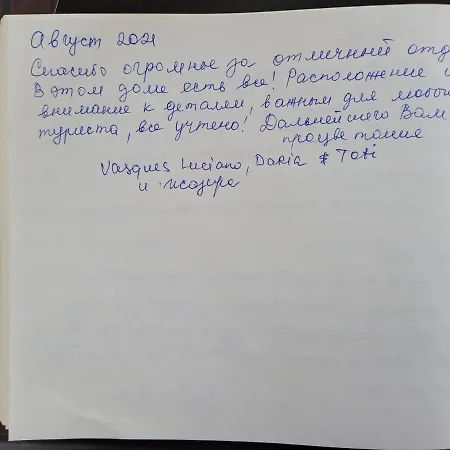 Август 2021
Спасибо огромное за отличный отд
В этом доме есть все! Расположение и
внимание к деталям, важным для любого
туриста, все учтено! Дальнейшего Вам
процветания
Vasques Luciano, Daria & Toti
и